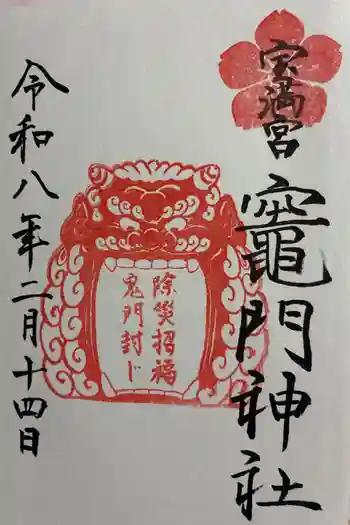 宝満宮
竈門神社
除災招福
鬼門封じ
令和八年二月十四日